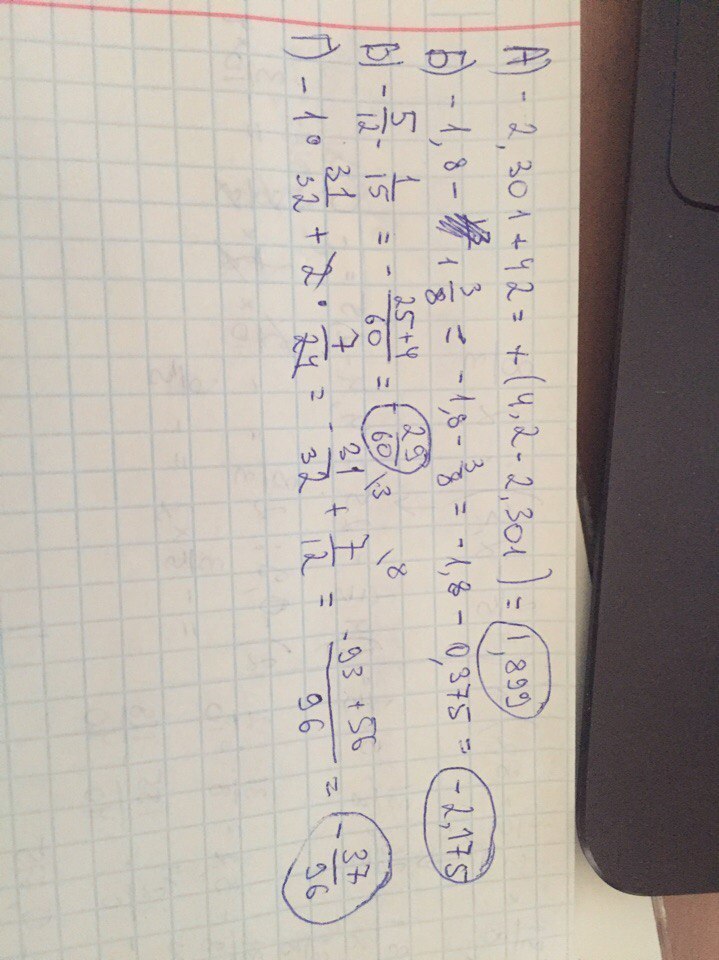 А) - 2,301 + 42 = + (4,2 - 2,301) = 1,899
Б) - 1,8 - 1 3/8 = - 1,8 - 3/8 = - 1,8 - 0,375 = - 2,175
В) - 5/12 - 1/15 = - (25+4)/60 = - 29/60
Г) - 1 · 31/32 + 2 · 7/24 = - 21/32 \3 + 7/12 \8 = (-93 + 56)/96 = - 37/96